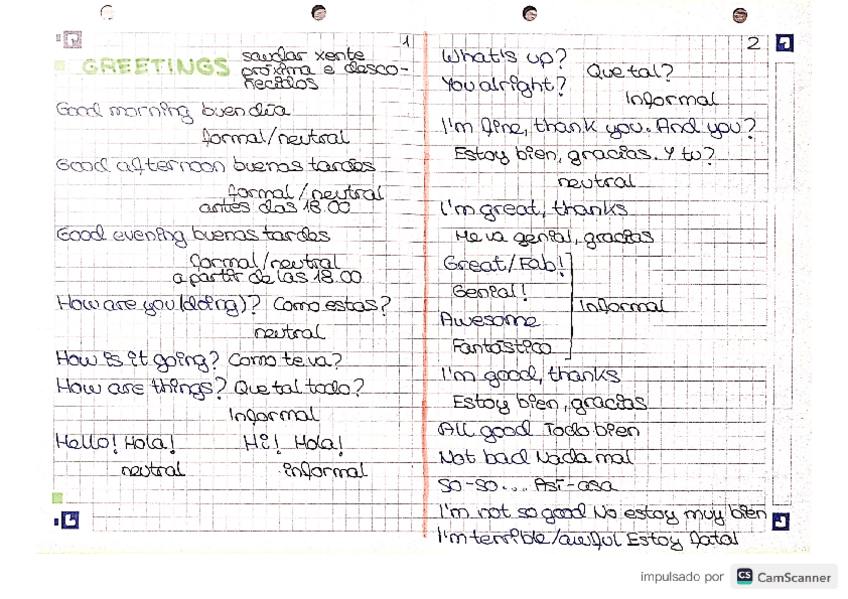 1
GREETINGS saudar xente
próxima e desco-
ñecidos
Good morning buen día
formal/neutral
Good afternoon buenas tardes
formal/neutral
antes das 18.00
Good evening buenas tardes
formal/neutral
a partir de las 18.00
How are you (doing)? Como estas?
neutral
How is it going? Como te va?
How are things? Que tal todo?
Informal
Hello! Hola! Hi! Hola!
neutral informal
2
What's up?
Que tal?
You alright?
Informal
I'm fine, thank you. And you?
Estoy bien, gracias. Y tu?
neutral
I'm great, thanks
Me va genial, gracias
Great/Fab!
Genial!
Informal
Awesome
Fantástico
I'm good, thanks
Estoy bien, gracias
All good Todo bien
Not bad Nada mal
So-so... Así-asa
I'm not so good No estoy muy bien
I'm terrible/awful Estoy fatal
impulsado por CS CamScanner